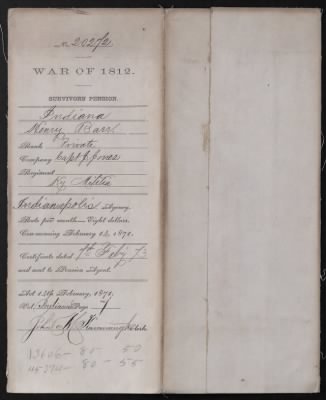 No 20272
WAR OF 1812.
SURVIVORS PENSION.
Indiana
Henry Barr
Rank Private
Company Capt J. Jones
Regiment
Ky Militia
Indianapolis Agency.
Rate per month—Eight dollars.
Commencing February 14, 1871.
Certificate dated 7th Feby 73
and sent to Pension Agent.
Act 14th February, 1871.
Vol. Indiana Page 7
John Clerk.
13606 - 80 - 50
80 - 55